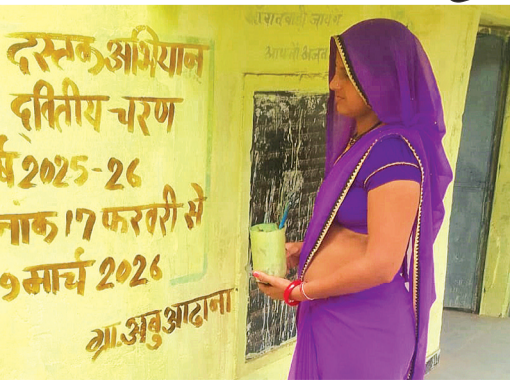 दस्तक अभियान
द्वितीय चरण
र्ष 2025-26
नांक 17 फरवरी से
मार्च 2026
ग्रा. अबुआढाना